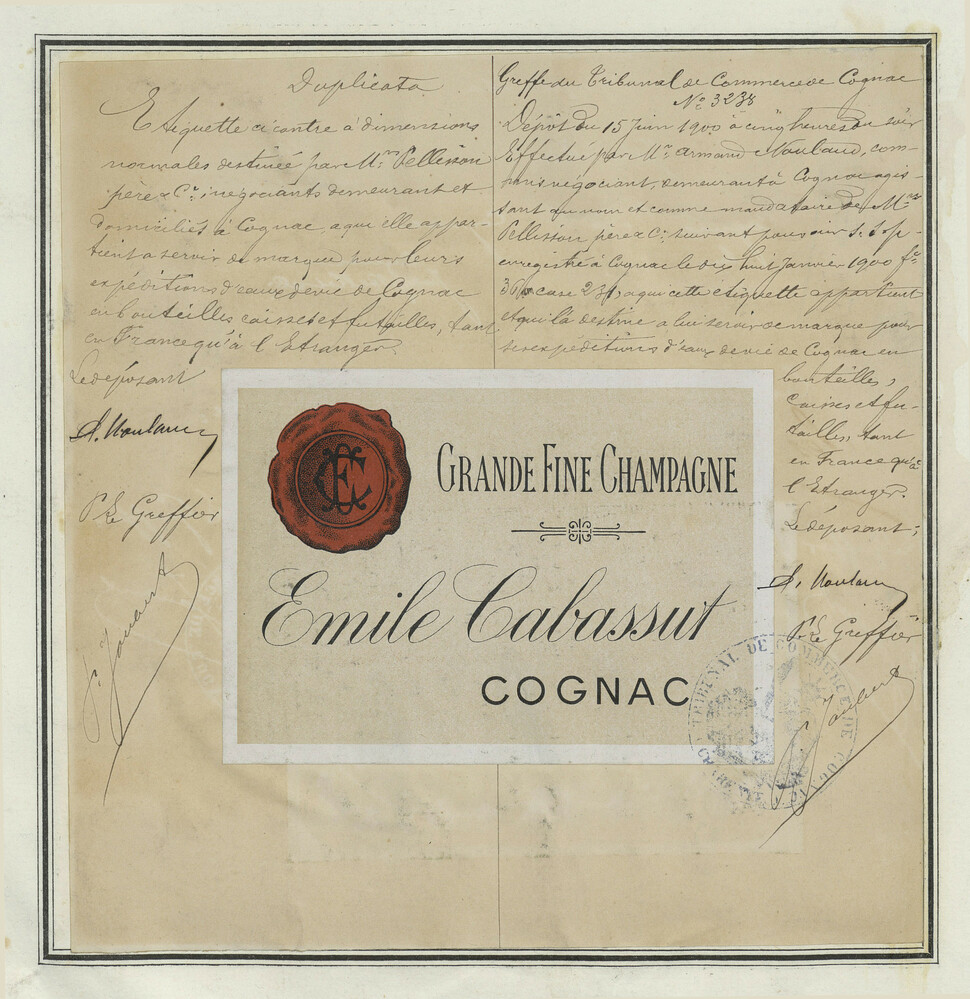 Duplicata
Etiquette ci contre à dimensions
normales destinée par Mrs Pellisson
père & Cie, négociants demeurant et
domiciliés à Cognac, a qui elle appar-
tient a servir de marque pour leurs
expéditions d'eaux de vie de Cognac
en bouteilles caisses et futailles, tant
en France qu'à l'Etranger.
Le déposant
A. Naulaud
Pr Le Greffier
Greffe du Tribunal de Commerce de Cognac
No 3238
Dépôt du 15 Juin 1900 à cinq heures du soir
Effectué par Mr Armand Naulaud, com-
mis négociant, demeurant à Cognac agis-
sant au nom et comme mandataire de Mrs
Pellisson père & Cie suivant pouvoir s. s. p.
enregistré à Cognac le dix huit Janvier 1900 fo
case 231, a qui cette etiquette appartient
et qui la destine a lui servir de marque pour
ses expeditions d'eaux de vie de Cognac en
bouteilles,
Caisses et fu-
tailles, tant
en France qu'à
l'Etranger.
Le déposant;
A. Naulaud
Pr Le Greffier
CE
GRANDE FINE CHAMPAGNE
Emile Cabassut
COGNAC
TRIBUNAL DE COMMERCE DE COGNAC
CHARENTE